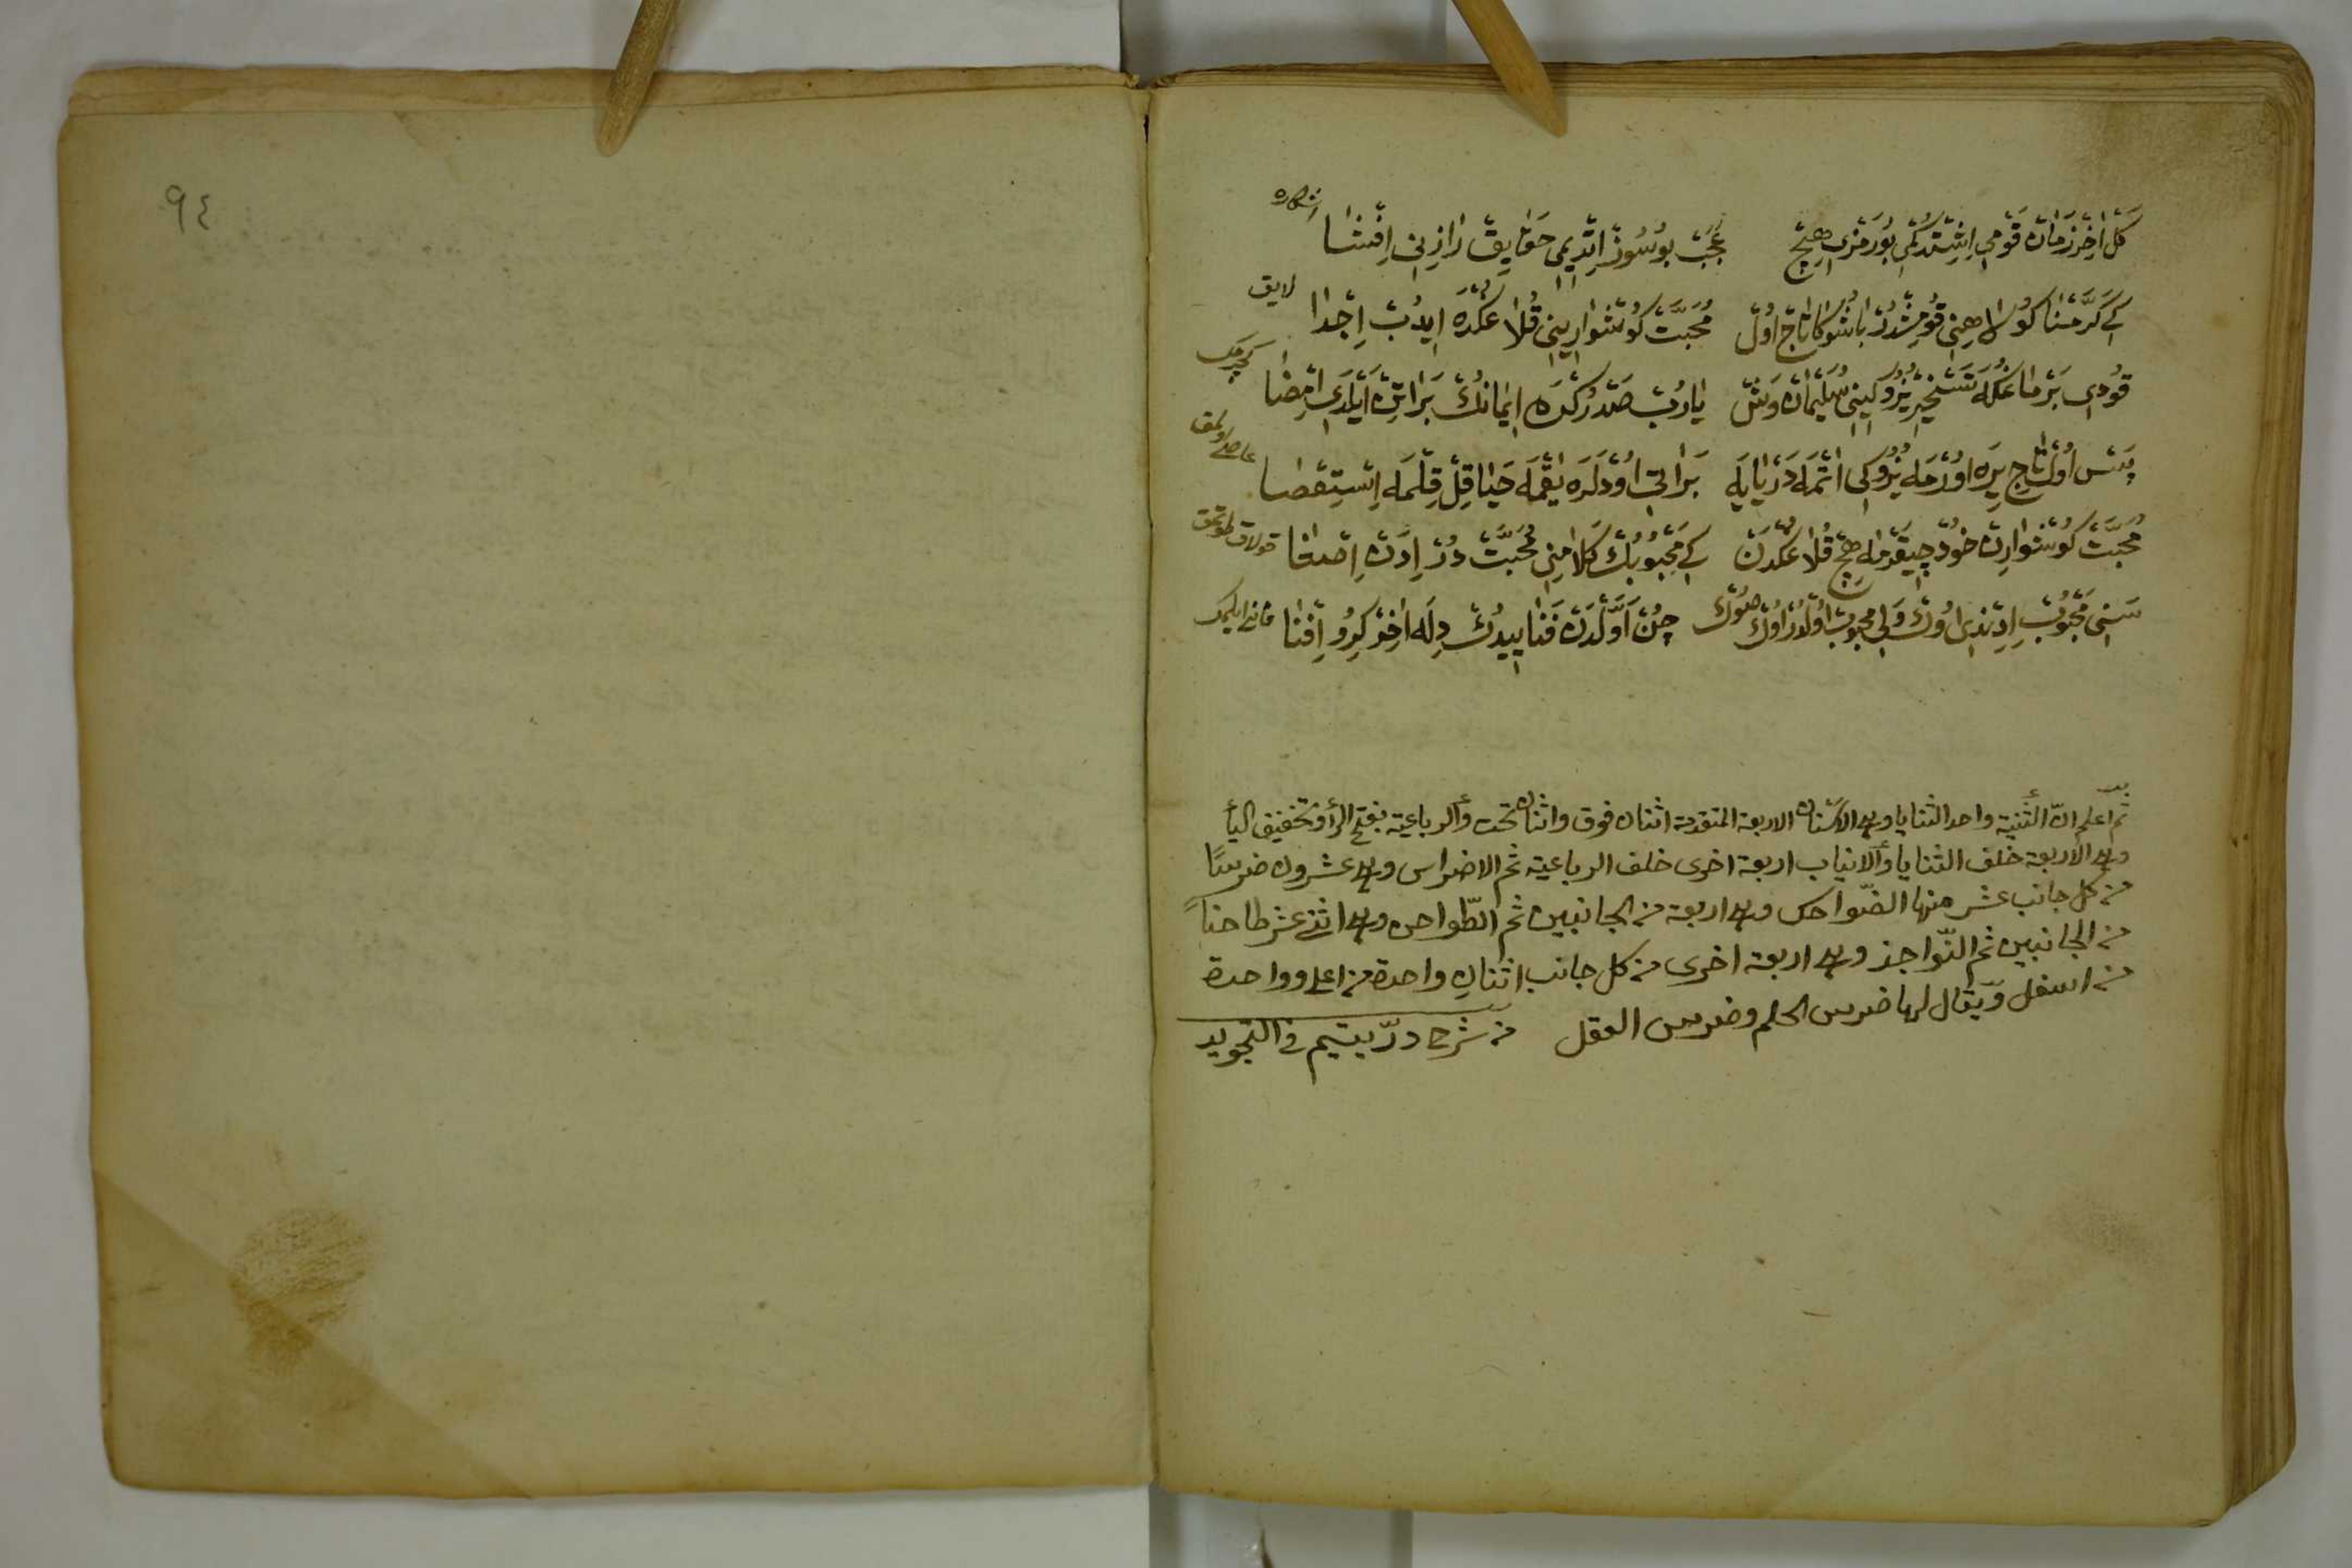 كَلْ اٰخِرْ زَمَانْ قَوْمِي اِشِتْدُكْمِي بُورَمْزِي هِيچْ عَجَبْ بُوسُوزْ اِتْدِيمِي حَقَايِقْ رَازِنِي اِفْشَا
اشكاره
كَرَّمْنَا باشُوكَا تَاجْ اُولْ مُحَبَّتْ كُوشْوَارِينِي قُلَاغُكْدَه اِيدُبْ اِجْدَا
لايق
قُودِي بَرْمَاغُكَه تَسْخِيرْ يُزُوكِينِي سُلَيْمَانْ وَشْ يَازُبْ صَدْرُكْدَه اِيمَانُكْ بَرَاتِنْ اَيْلَدِي اِمْضَا
كچرمك
پَسْ اُولْ تَاجِي يِرَه اُورْمَه يُزُوكِي اَتْمَه دَرْيَايَه بَرَاتِي اُودْلَرَه يَقْمَه حَيَا قِلْ قِلْمَه اِسْتِقْصَا
عاصي اولمق
مُحَبَّتْ كُوشْوَارِنْ خُودْ چِيقَرْمَه هِيچْ قُلَاغُكْدَنْ كِه مَحْبُوبُكْ كَلَامِنِي مُحَبَّتْ دُرْ اِدَنْ اِصْغَا
قولاق طوتمق
سَنِي مَحْبُوبْ اِدِنْدِي اُوكْ وَلِي مَحْبُوبْ اُولُورْ اُوكْ صُوكْ چُنْ اَوَّلْدَنْ فَنَا اِيدُكْ دِلَه اٰخِرْ كِرُو اِفْنَا
فاني ايلمك
ثم اعلم انّ الثنية واحد الثنايا وهي الاسنان الاربعة المتقدمة اثنان فوق واثنان تحت والرباعية بفتح الراء وتخفيف الياء
وهي الاربعة خلف الثنايا والانياب اربعة اخرى خلف الرباعية ثم الاضراس وهي عشرون ضرسًا
من كل جانب عشر منها الضّواحك وهي اربعة من الجانبين ثم الطّواحن وهي اثني عشر طاحنًا
من الجانبين ثم النّواجذ وهي اربعة اخرى من كل جانب اثنان واحدة من اعلى وواحدة
من اسفل ويقال لها ضرس الحلم وضرس العقل من شرح درّ يتيم في التجويد
٩٤